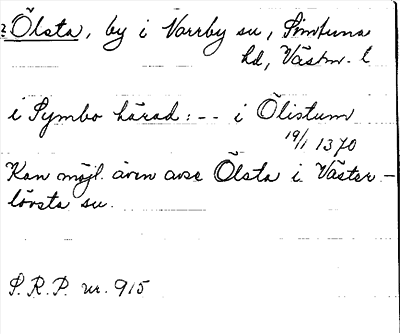 ? Ölsta, by i Norrby sn, Simtuna
hd, Västm. l
i Symbo härad: -- i Ölistum
19/1 1370
Kan möjl. även avse Ölsta i Väster-
lövsta sn.
S.R.P. nr. 915